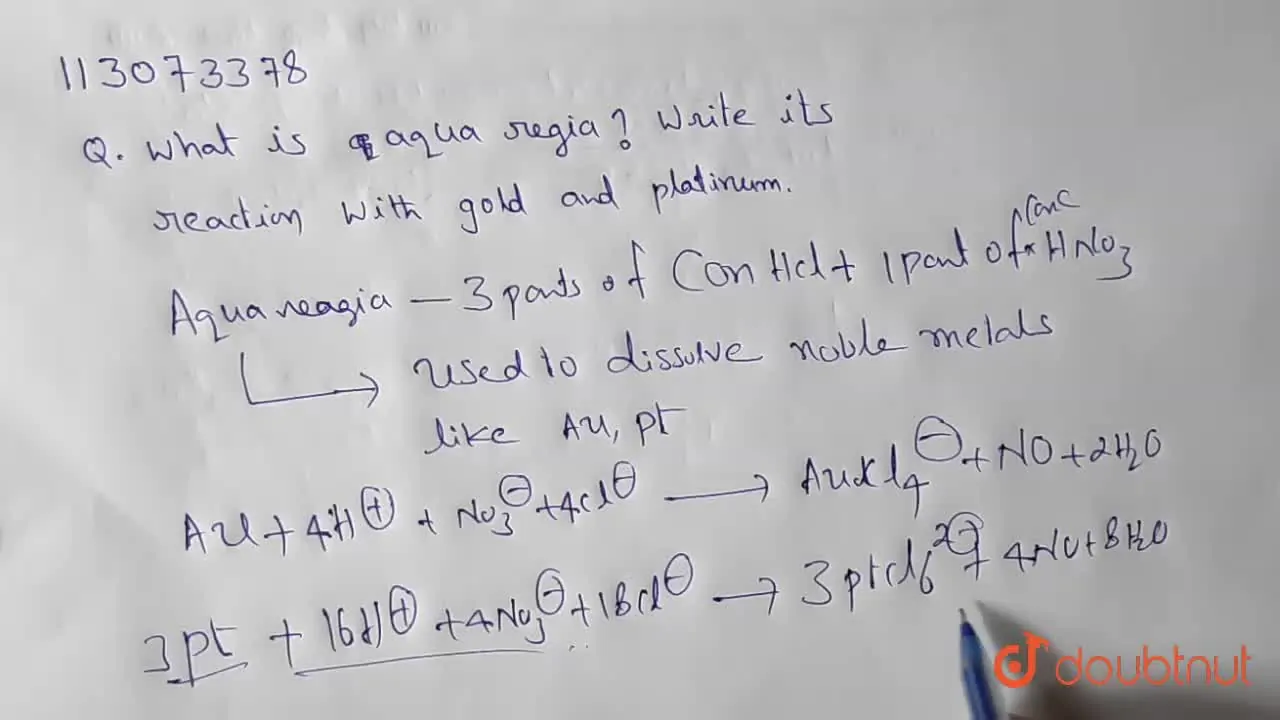 113073378
Q. What is aqua regia? Write its
reaction with gold and platinum.
Aqua reagia — 3 parts of Con Hcl + 1 part of conc HNO3
Used to dissolve noble metals
like AU, pt
AU + 4H⊕ + NO3⊖ + 4Cl⊖ → AuCl4⊖ + NO + 2H2O
3pt + 16H⊕ + 4NO3⊖ + 18Cl⊖ → 3ptCl6 2⊖ + 4NO + 8H2O
doubtnut